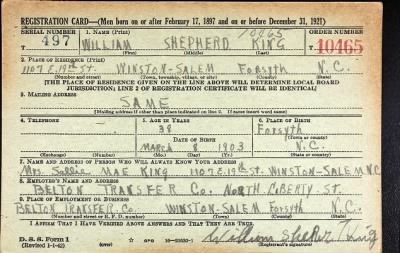 REGISTRATION CARD—(Men born on or after February 17, 1897 and on or before December 31, 1921)
SERIAL NUMBER 1. NAME (Print) 10465 ORDER NUMBER
497 WILLIAM SHEPHERD KING 10465
(First) (Middle) (Last)
2. PLACE OF RESIDENCE (Print)
1107 E. 19th St. WINSTON-SALEM Forsyth N.C.
(Number and street) (Town, township, village, or city) (County) (State)
[THE PLACE OF RESIDENCE GIVEN ON THE LINE ABOVE WILL DETERMINE LOCAL BOARD
JURISDICTION; LINE 2 OF REGISTRATION CERTIFICATE WILL BE IDENTICAL]
3. MAILING ADDRESS
SAME
(Mailing address if other than place indicated on line 2. If same insert word same)
4. TELEPHONE 5. AGE IN YEARS 6. PLACE OF BIRTH
38 Forsyth
DATE OF BIRTH (Town or county)
MARCH 8 1903 N.C.
(Exchange) (Number) (Mo.) (Day) (Yr.) (State or country)
7. NAME AND ADDRESS OF PERSON WHO WILL ALWAYS KNOW YOUR ADDRESS
Mrs. Sallie MAE KING 1107 E. 19th St. WINSTON-SALEM N.C.
8. EMPLOYER'S NAME AND ADDRESS
BELTON TRANSFER Co. NORTH LIBERTY ST.
9. PLACE OF EMPLOYMENT OR BUSINESS
BELTON TRANSFER Co. WINSTON-SALEM Forsyth N.C.
(Number and street or R. F. D. number) (Town) (County) (State)
I AFFIRM THAT I HAVE VERIFIED ABOVE ANSWERS AND THAT THEY ARE TRUE.
D. S. S. Form 1
(Revised 1-1-42) (over) GPO William King
(Registrant's signature)